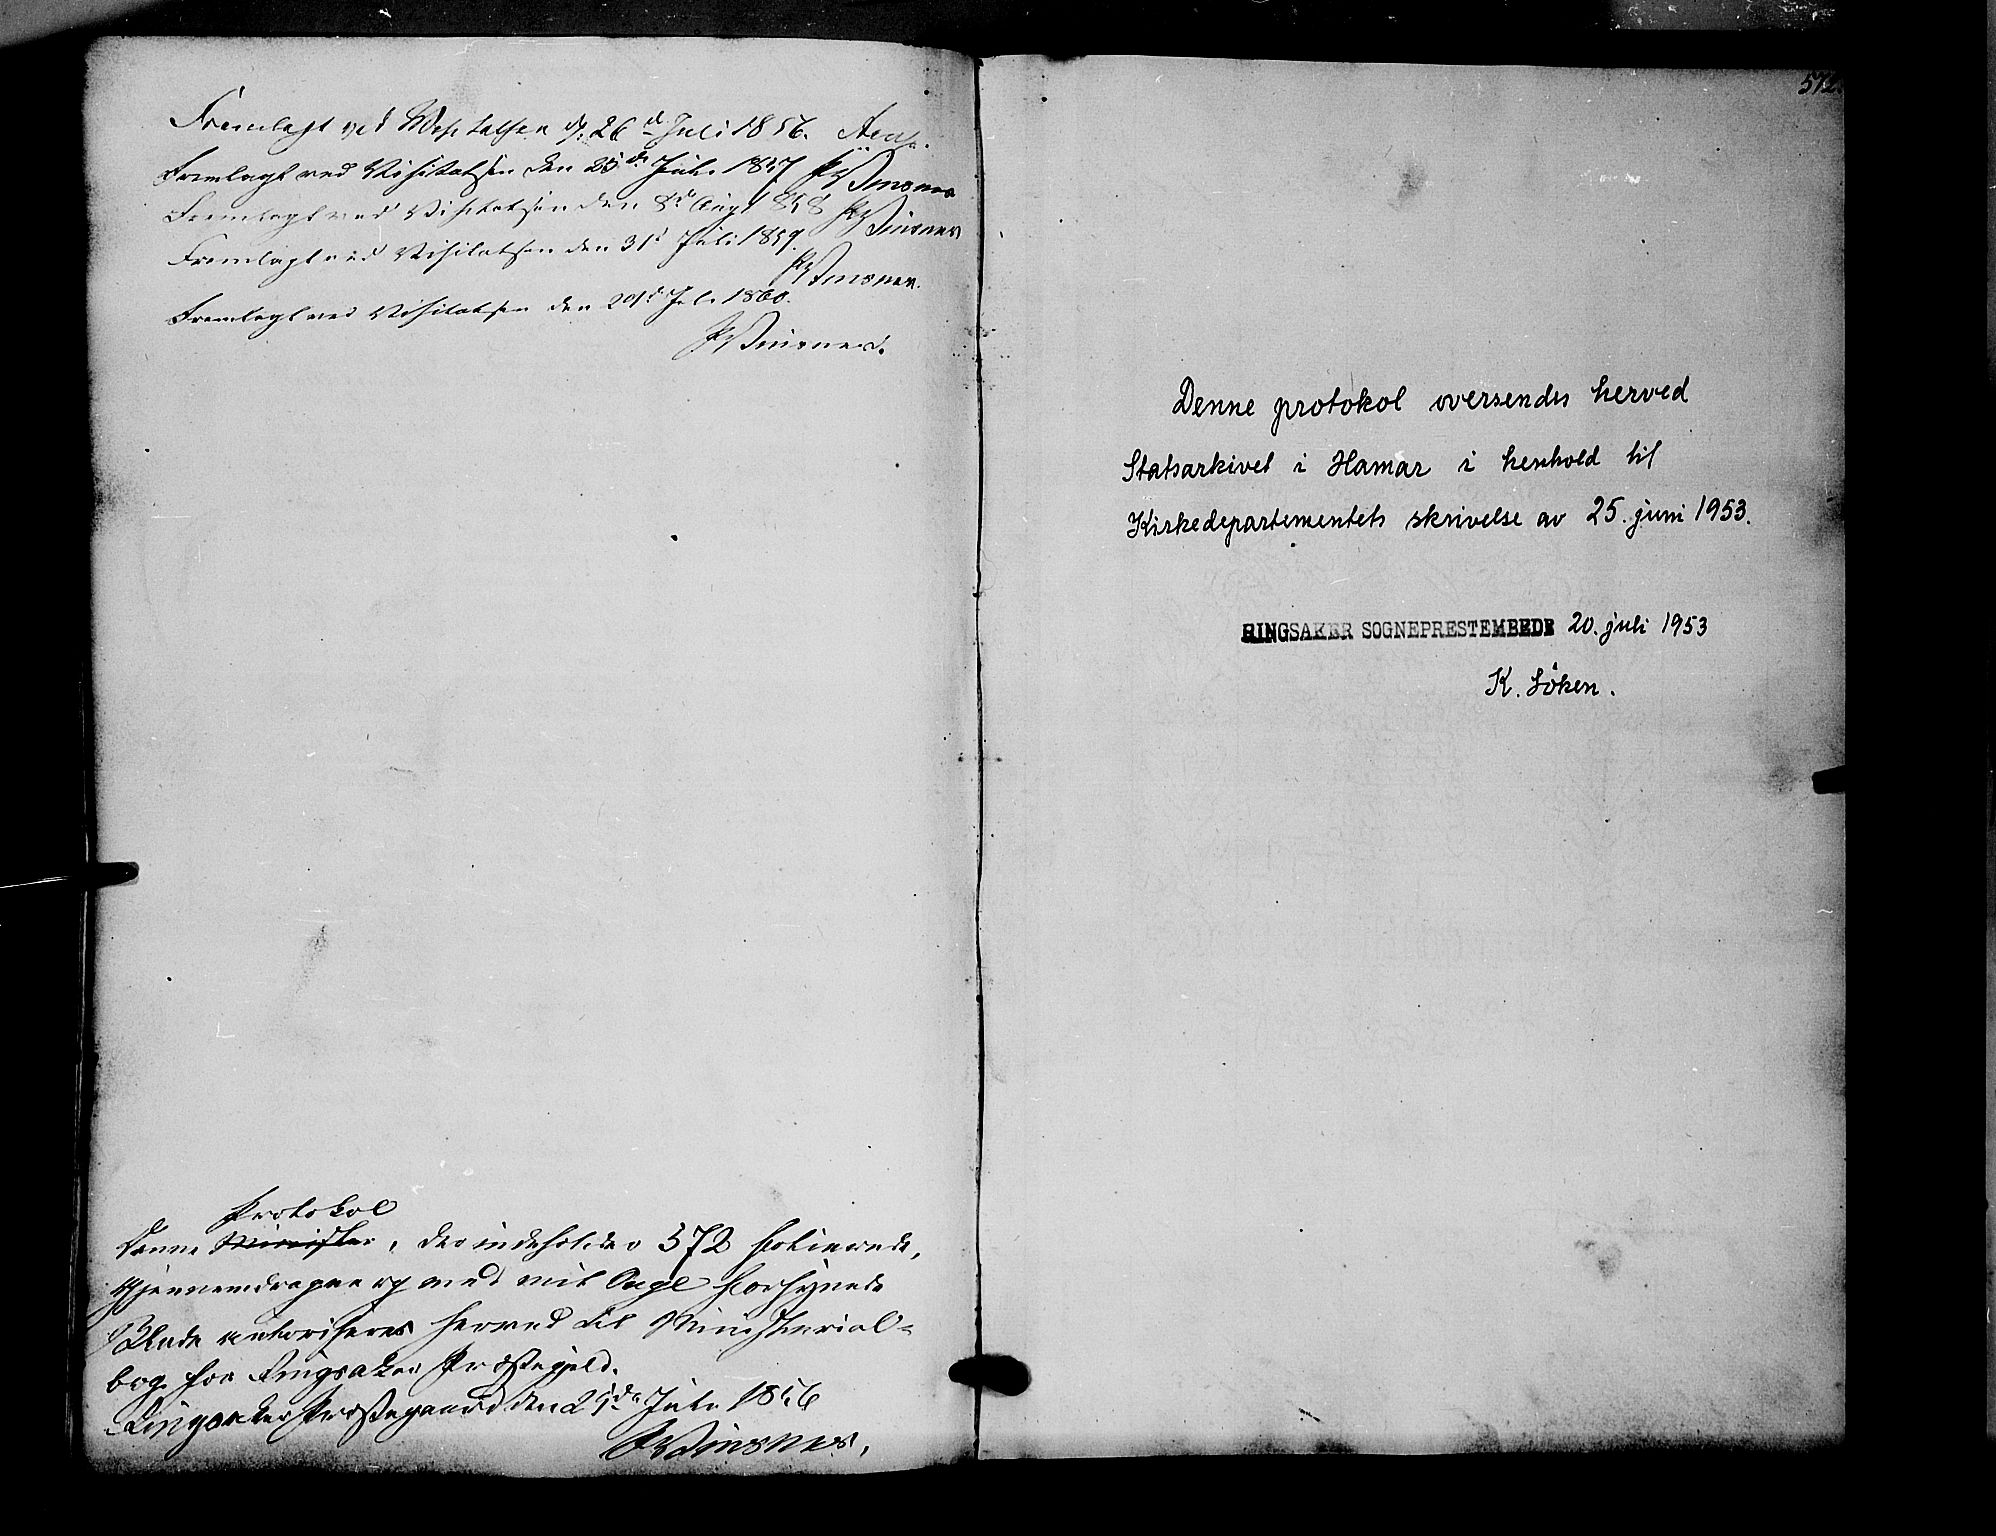 Fremlagt ved Visitatsen d. 26 d. Juli 1856.
Fremlagt ved Visitatsen den 25de Juli 1857 P Winsnes
Fremlagt ved Visitatsen den 8de Aug 1858 P Winsnes
Fremlagt ved Visitatsen den 31te Juli 1859.
P Winsnes.
Fremlagt ved Visitatsen den 29de Juli 1860.
P Winsnes.
Protokol
Denne Minister, der indeholder 572 folierede,
gjennemdragne og med mit Segl forsynede
Blade autoriseres herved til Ministerial-
bog for Ringsaker Præstegjeld.
Ringsaker Præstegaard den 25de Juli 1856
P Winsnes.
572.
Denne protokol oversendes herved
Statsarkivet i Hamar i henhold til
Kirkedepartementets skrivelse av 25. juni 1953.
RINGSAKER SOGNEPRESTEMBEDE 20. juli 1953
K. Löken.